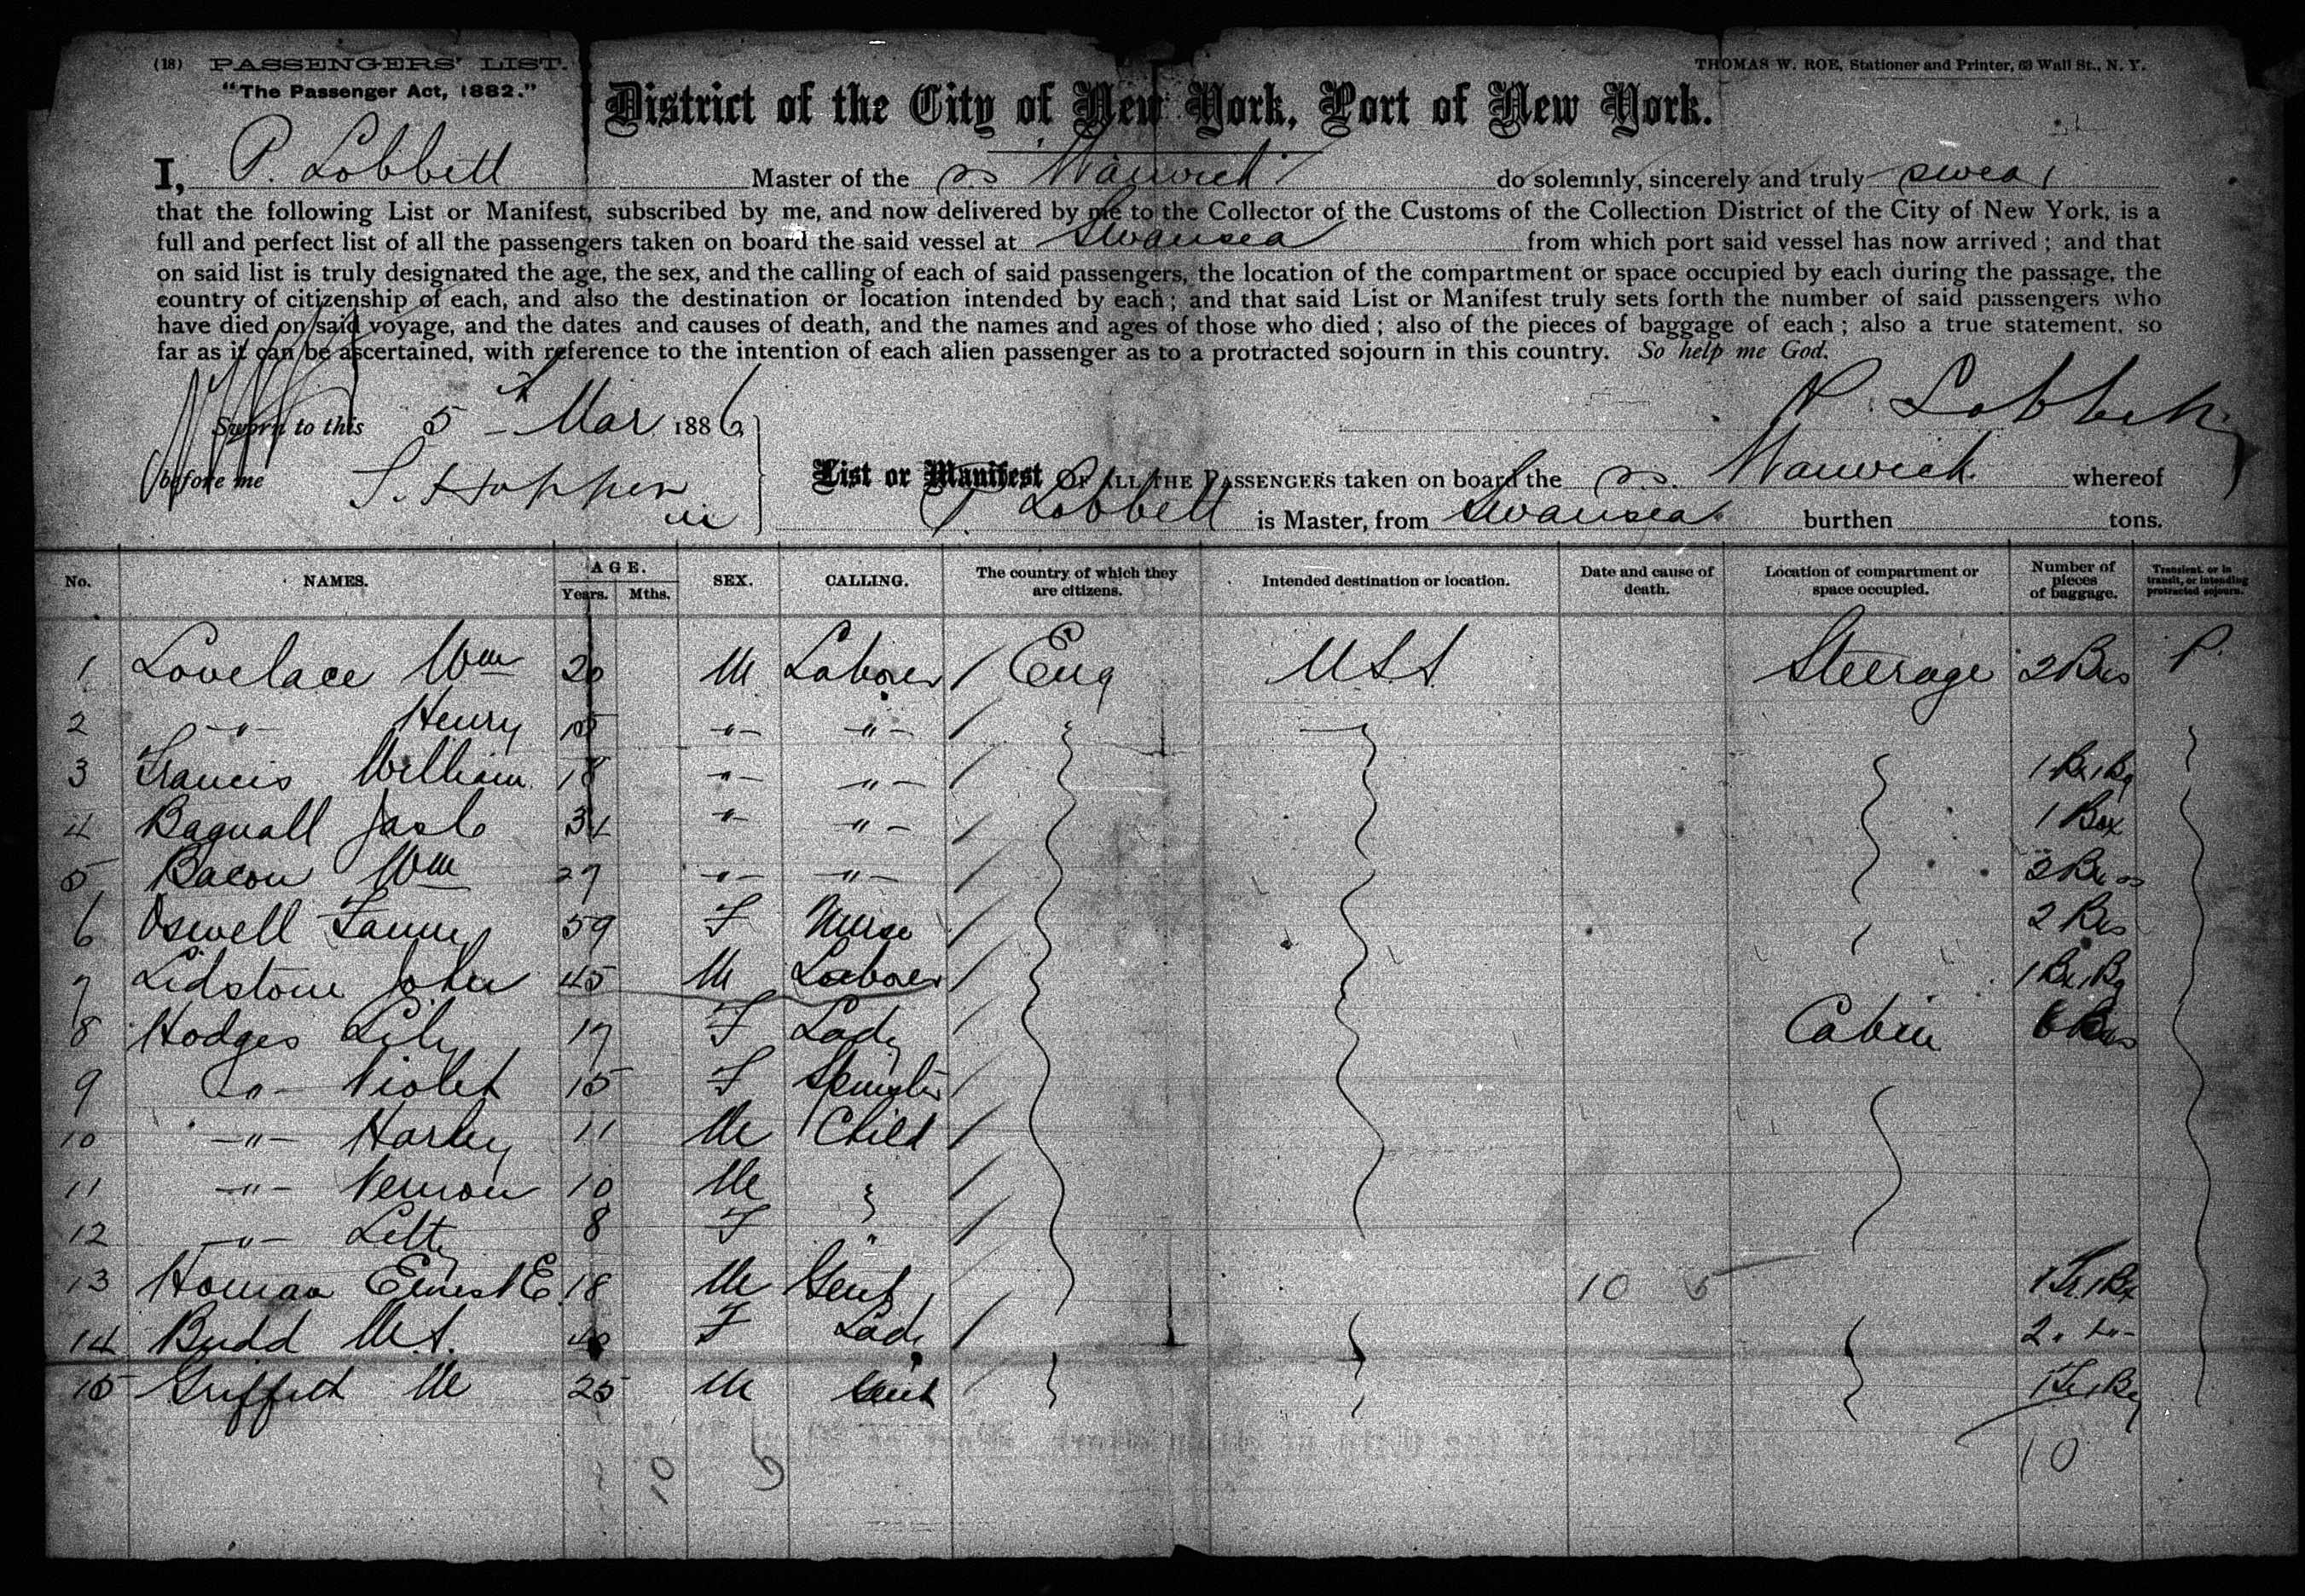 (18) PASSENGERS' LIST.
THOMAS W. ROE, Stationer and Printer, 69 Wall St., N. Y.
"The Passenger Act, 1882."
District of the City of New York, Port of New York.
I, P. Lobbett Master of the SS Warwick do solemnly, sincerely and truly swear
that the following List or Manifest, subscribed by me, and now delivered by me to the Collector of the Customs of the Collection District of the City of New York, is a
full and perfect list of all the passengers taken on board the said vessel at Swansea from which port said vessel has now arrived; and that
on said list is truly designated the age, the sex, and the calling of each of said passengers, the location of the compartment or space occupied by each during the passage, the
country of citizenship of each, and also the destination or location intended by each; and that said List or Manifest truly sets forth the number of said passengers who
have died on said voyage, and the dates and causes of death, and the names and ages of those who died; also of the pieces of baggage of each; also a true statement, so
far as it can be ascertained, with reference to the intention of each alien passenger as to a protracted sojourn in this country. So help me God.
Sworn to this 5th Mar 1886 P. Lobbett
before me List or Manifest OF ALL THE PASSENGERS taken on board the SS. Warwick whereof
P. Lobbett is Master, from Swansea burthen tons.
No. NAMES. AGE. Years. Mths. SEX. CALLING. The country of which they are citizens. Intended destination or location. Date and cause of death. Location of compartment or space occupied. Number of pieces of baggage. Transient, or in transit, or intending protracted sojourn.
1 Lovelace Wm 20 M Laborer / Eng U.S.A. Steerage 2 Bxs P.
2 -"- Henry -"- -"- /
3 Francis William 18 -"- -"- / 1 Bx 1 Bg
4 Bagnall 34 " -"- / 1 Box
5 Bacon Wm 27 -"- -"- /
6 Oswell Fanny 59 F Nurse / 2 Bxs
7 Lidstone John 45 M Laborer / 1 Bx 1 Bg
8 Hodges Lily 17 F Lady / Cabin
9 -"- Violet 15 F Spinster /
10 -"- Harley 11 M Child /
11 -"- Vernon 10 M " /
12 -"- Letty 8 F " /
13 Homan Ernest E 18 M Gent / 10 5 1 Tr. 1 Bx
14 Budd M.A. 40 F Lady / 2 -"-
15 Griffith M 25 M Gent / 1 Tr 1 Bg
10